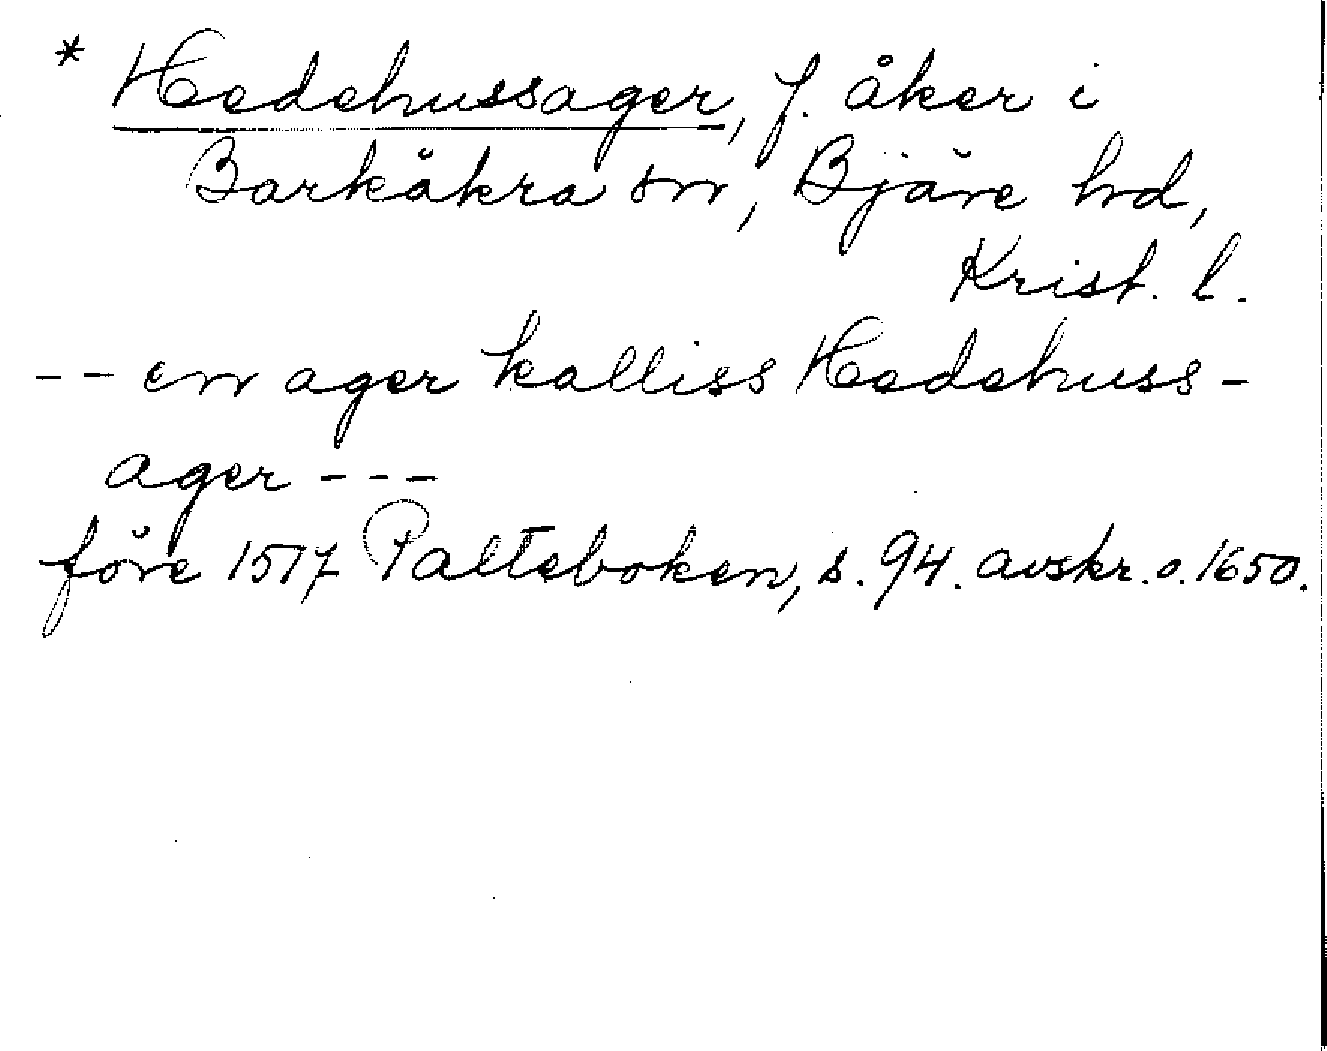 * Hedehussager, f. åker i
Barkåkra sn, Bjäre hd,
Krist. l.
-- en ager kalliss Hedehuss-
ager ---
före 1517 Palteboken, s. 94. avskr. o. 1650.